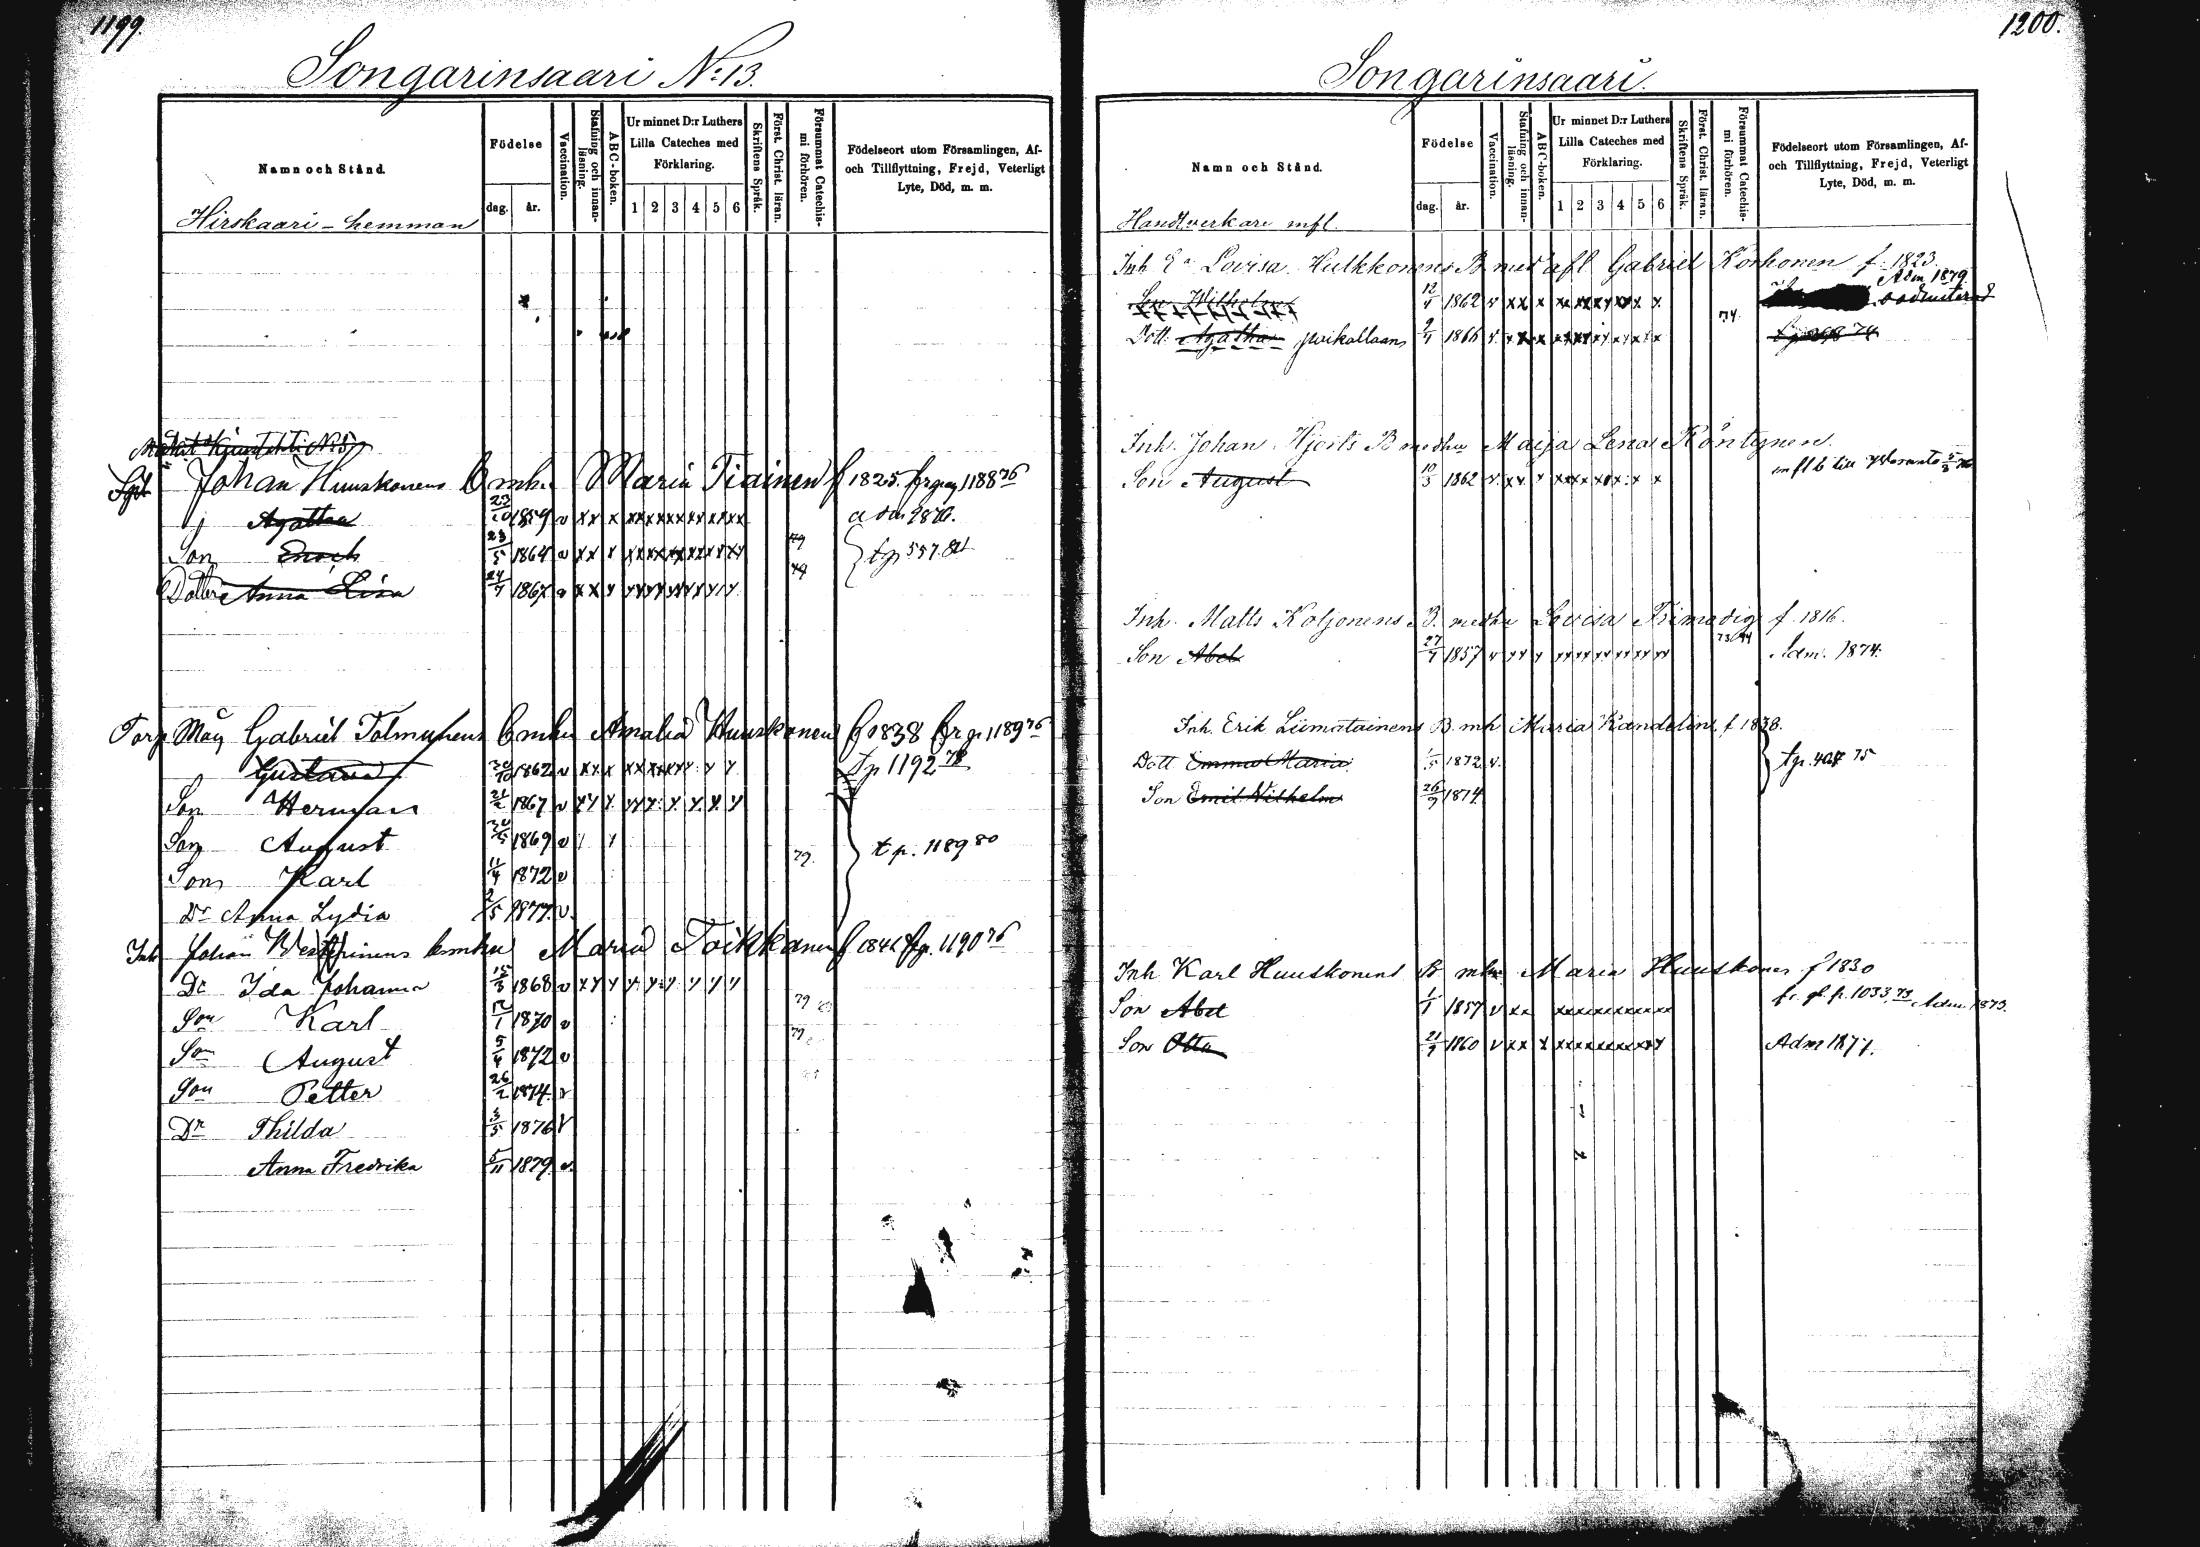 1199.
Songarinsaari No 13.
Namn och Stånd.
Födelse
dag. år.
Vaccination.
Stafning och innanläsning.
ABC-boken.
Ur minnet D:r Luthers Lilla Cateches med Förklaring.
1 2 3 4 5 6
Skriftens Språk.
Först. Christ. läran.
Försummat Catechismi förhören.
Födelseort utom Församlingen, Af- och Tillflyttning, Frejd, Veterligt Lyte, Död, m. m.
Hirskaari - hemman
Johan Huuskonens B mhu Maria Tiainen f 1825. fr pag 1188 76
Agatha 23/10 1859 v xx x
Son Enoch 23/5 1864 v xx x 79 tp 557.
Dotter Anna Lisa 24/7 1867 v xx x
Torp Måg Gabriel Tolmunens B mhu Amalia Huuskonen f 1838 fr p 1189 76
Gustava 1862 v xx x tp 1192 78
Son Herman 21/2 1867 v
Son August 1869 v t p. 1189 80
Son Karl 11/4 1872 v 79.
Dr Anna Lydia 2/5 1877. v
Inh Johan bmhu Maria Toikkanen fr p. 1190 76
Dr Ida Johanna 15/3 1868 v
Son Karl 12/1 1870 v 79
Son August 5/4 1872 v 79
Son Petter 26/2 1874. v
Dr Thilda 3/5 1876 v
Anna Fredrika 5/11 1879. v
1200.
Songarinsaari.
Namn och Stånd.
Födelse
dag. år.
Vaccination.
Stafning och innanläsning.
ABC-boken.
Ur minnet D:r Luthers Lilla Cateches med Förklaring.
1 2 3 4 5 6
Skriftens Språk.
Först. Christ. läran.
Försummat Catechismi förhören.
Födelseort utom Församlingen, Af- och Tillflyttning, Frejd, Veterligt Lyte, Död, m. m.
Handtverkare mfl.
Inh Lovisa Hulkkonens B med afl Gabriel Korhonen f. 1823.
Son Wilhelm 12/4 1862 v xx x Adm 1879
Dott. Agatha 2/4 1866 v 74.
Inh. Johan Hjerts B medhu Maija Lena Röntynen.
Son August 10/3 1862 v
Inh. Matts Koljonens B. medhu Lovisa Frimodig f. 1816.
Son Abel 27/7 1857 v Adm. 1874.
Inh. Erik Liimatainens B. mh Maria Kandelin f 1838.
Dott Emma Maria 1/5 1872 v. tp. 75
Son Emil Wilhelm 26/7 1874
Inh Karl Huuskonens B mhu Maria Huuskonen f 1830
Son Abel 1/1 1857 v xx fr. p. 1033. 73 Adm. 1873.
Son Otto 21/7 1860 v xx x Adm 1877.